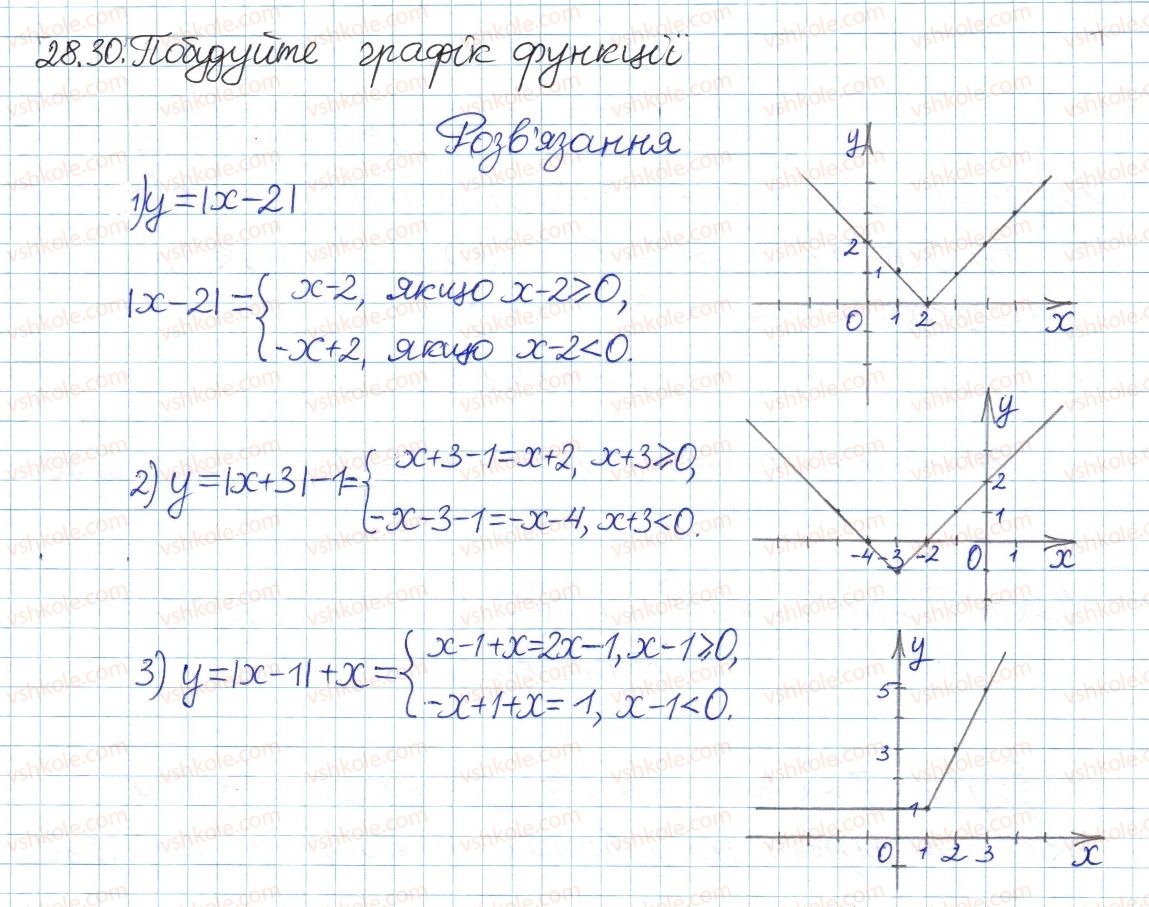 28.30. Побудуйте графік функції
Розв'язання
1) y = |x-2|
|x-2| = { x-2, якщо x-2≥0,
-x+2, якщо x-2<0.
y
2
1
0 1 2 x
2) y = |x+3|-1 = { x+3-1=x+2, x+3≥0,
-x-3-1=-x-4, x+3<0.
y
2
1
-4 -3 -2 0 1 x
3) y = |x-1|+x = { x-1+x=2x-1, x-1≥0,
-x+1+x=1, x-1<0.
y
5
3
1
0 1 2 3 x
vshkole.com